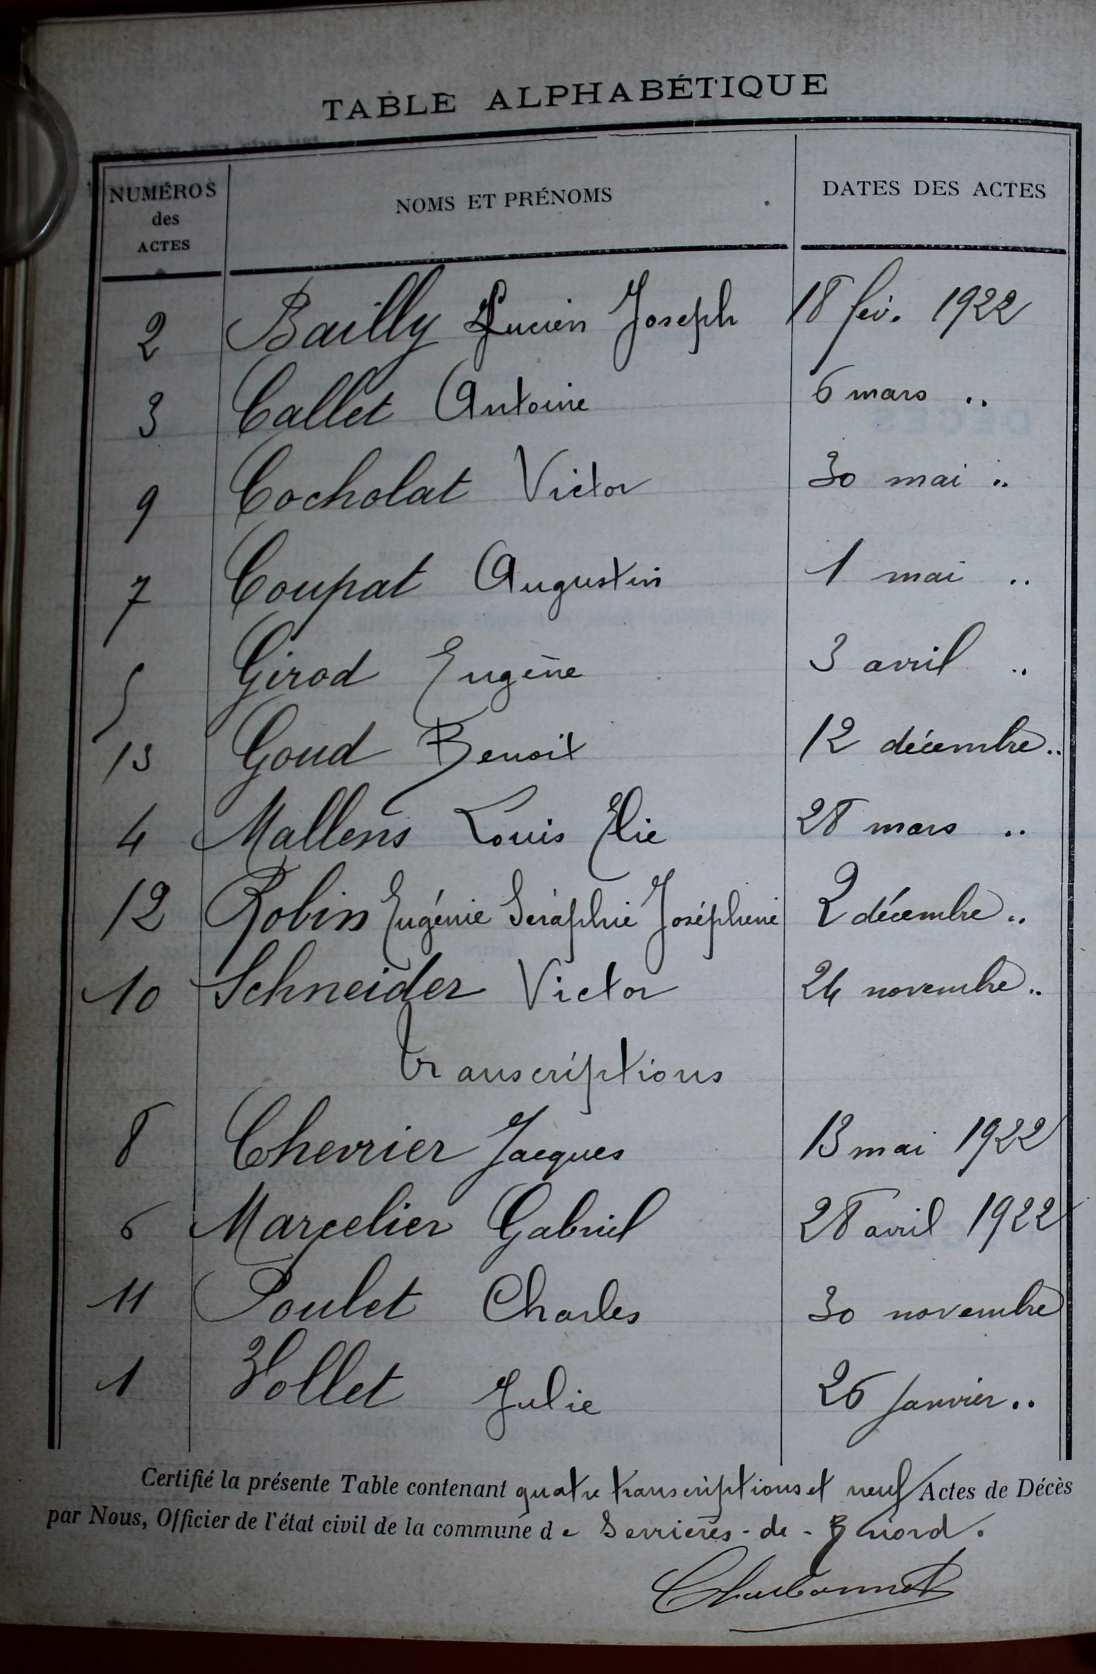 TABLE ALPHABÉTIQUE
NUMÉROS des ACTES NOMS ET PRÉNOMS DATES DES ACTES
2 Bailly Lucien Joseph 18 fév. 1922
3 Callet Antoine 6 mars ..
9 Cocholat Victor 30 mai ..
7 Coupat Augustin 1 mai ..
5 Girod Eugène 3 avril ..
13 Goud Benoit 12 décembre ..
4 Mallens Louis Elie 28 mars ..
12 Robin Eugénie Séraphie Joséphine 2 décembre ..
10 Schneider Victor 24 novembre ..
Transcriptions
8 Chevrier Jacques 13 mai 1922
6 Marcelier Gabriel 28 avril 1922
11 Poulet Charles 30 novembre
1 Vollet Julie 26 janvier ..
Certifié la présente Table contenant quatre transcriptions et neuf Actes de Décès
par Nous, Officier de l'état civil de la commune de Serrières-de-Briord.